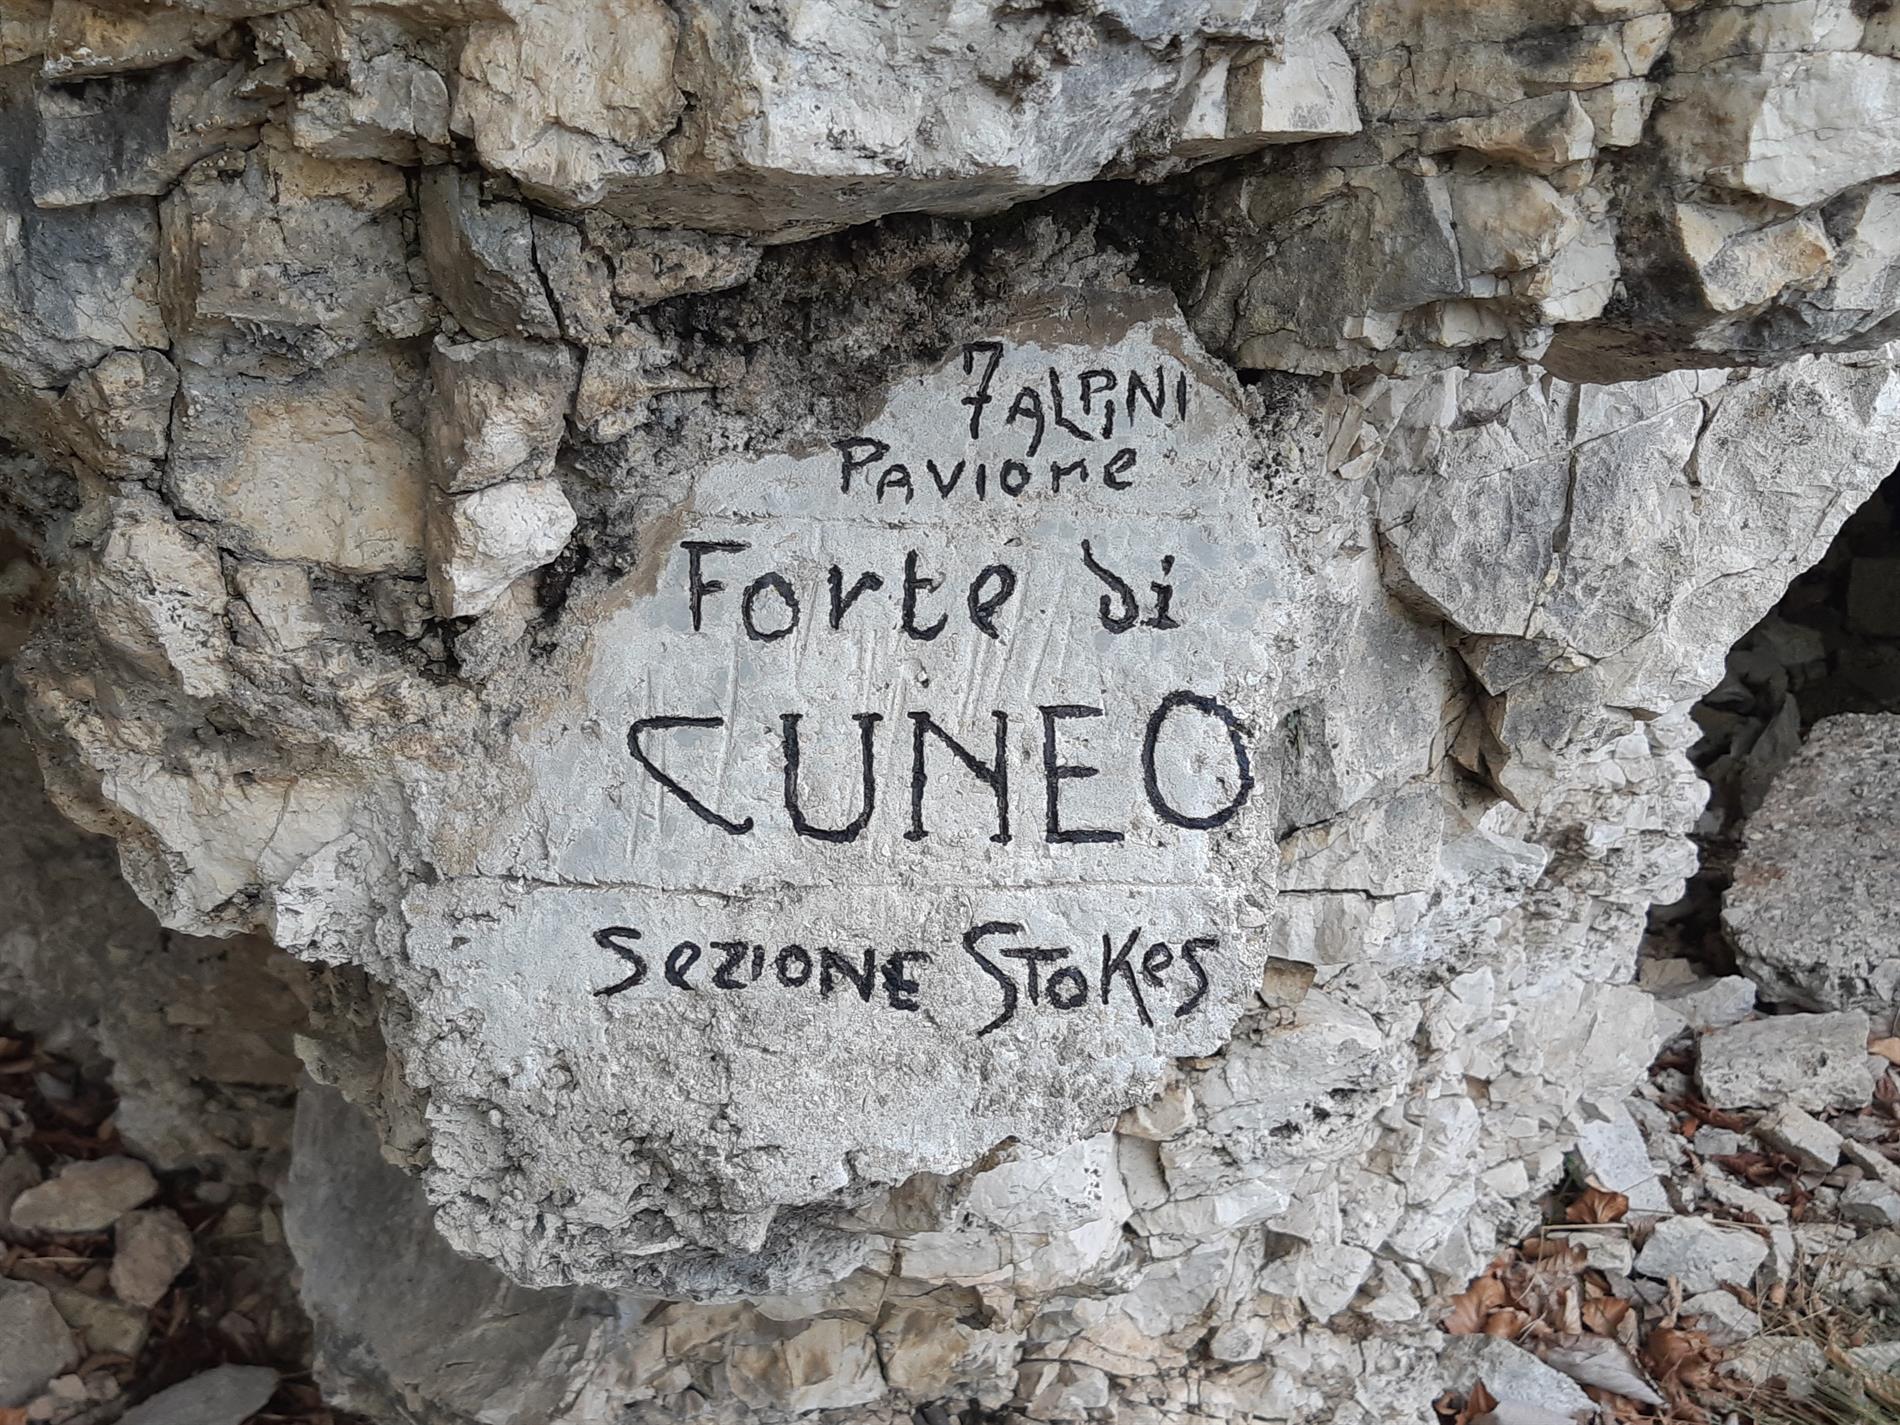 7 ALPINI
PAVIONE
Forte di
CUNEO
SEZIONE STOKES